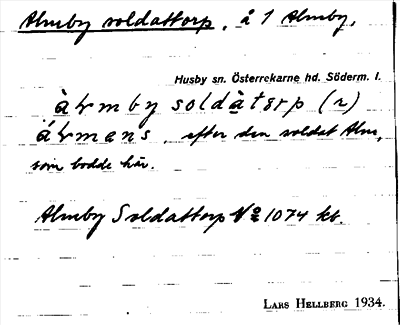 Almby soldattorp, å 1 Almby.
Husby sn. Österrekarne hd. Söderm. l.
àɫmby soldàtɘrp (2)
áɫmans, efter den soldat Alm,
som bodde här.
Almby Soldattorp No 1074 kb.
LARS HELLBERG 1934.